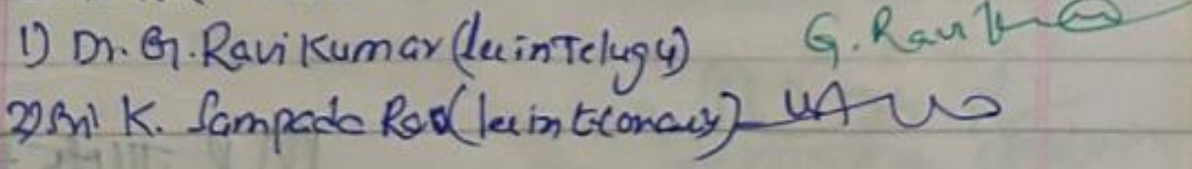 1) Dr. G. Ravi Kumar (lec in Telugu) G. Ravi K
2) Sri K. Sampada Rao (lec in Economics)